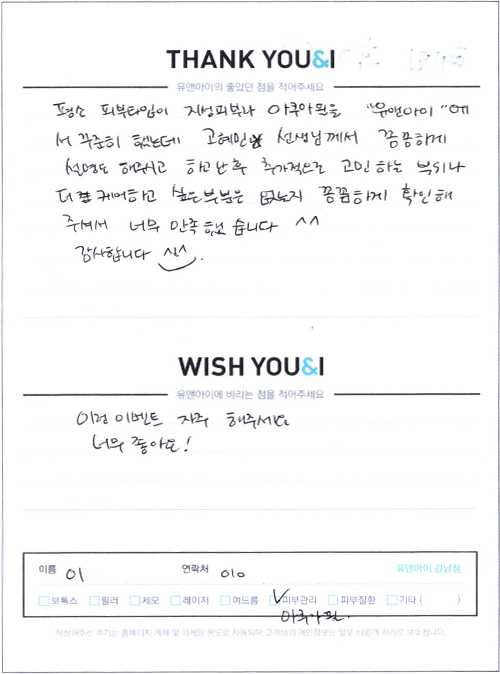 THANK YOU&I
유앤아이의 좋았던 점을 적어주세요
평소 피부타입이 지성피부라 아쿠아필을 "유앤아이"에
서 꾸준히 했는데 고혜민 선생님께서 꼼꼼하게
설명도 해주시고 하고난 후 추가적으로 고민하는 부위나
더 잘 케어하고 싶은부분은 없는지 꼼꼼하게 확인해
주셔서 너무 만족했습니다 ^^
감사합니다 ^^.
WISH YOU&I
유앤아이에 바라는 점을 적어주세요
이런 이벤트 자주 해주세요
너무 좋아요!
이름 이 연락처 010 유앤아이 강남점
보톡스 필러 제모 레이저 여드름 ✓피부관리 피부질환 기타 ( )
아쿠아필.
적어주신 후기는 홈페이지 게재 및 마케팅 용도로 사용되며 고객님의 개인정보는 일부 비공개 처리로 보호됩니다.